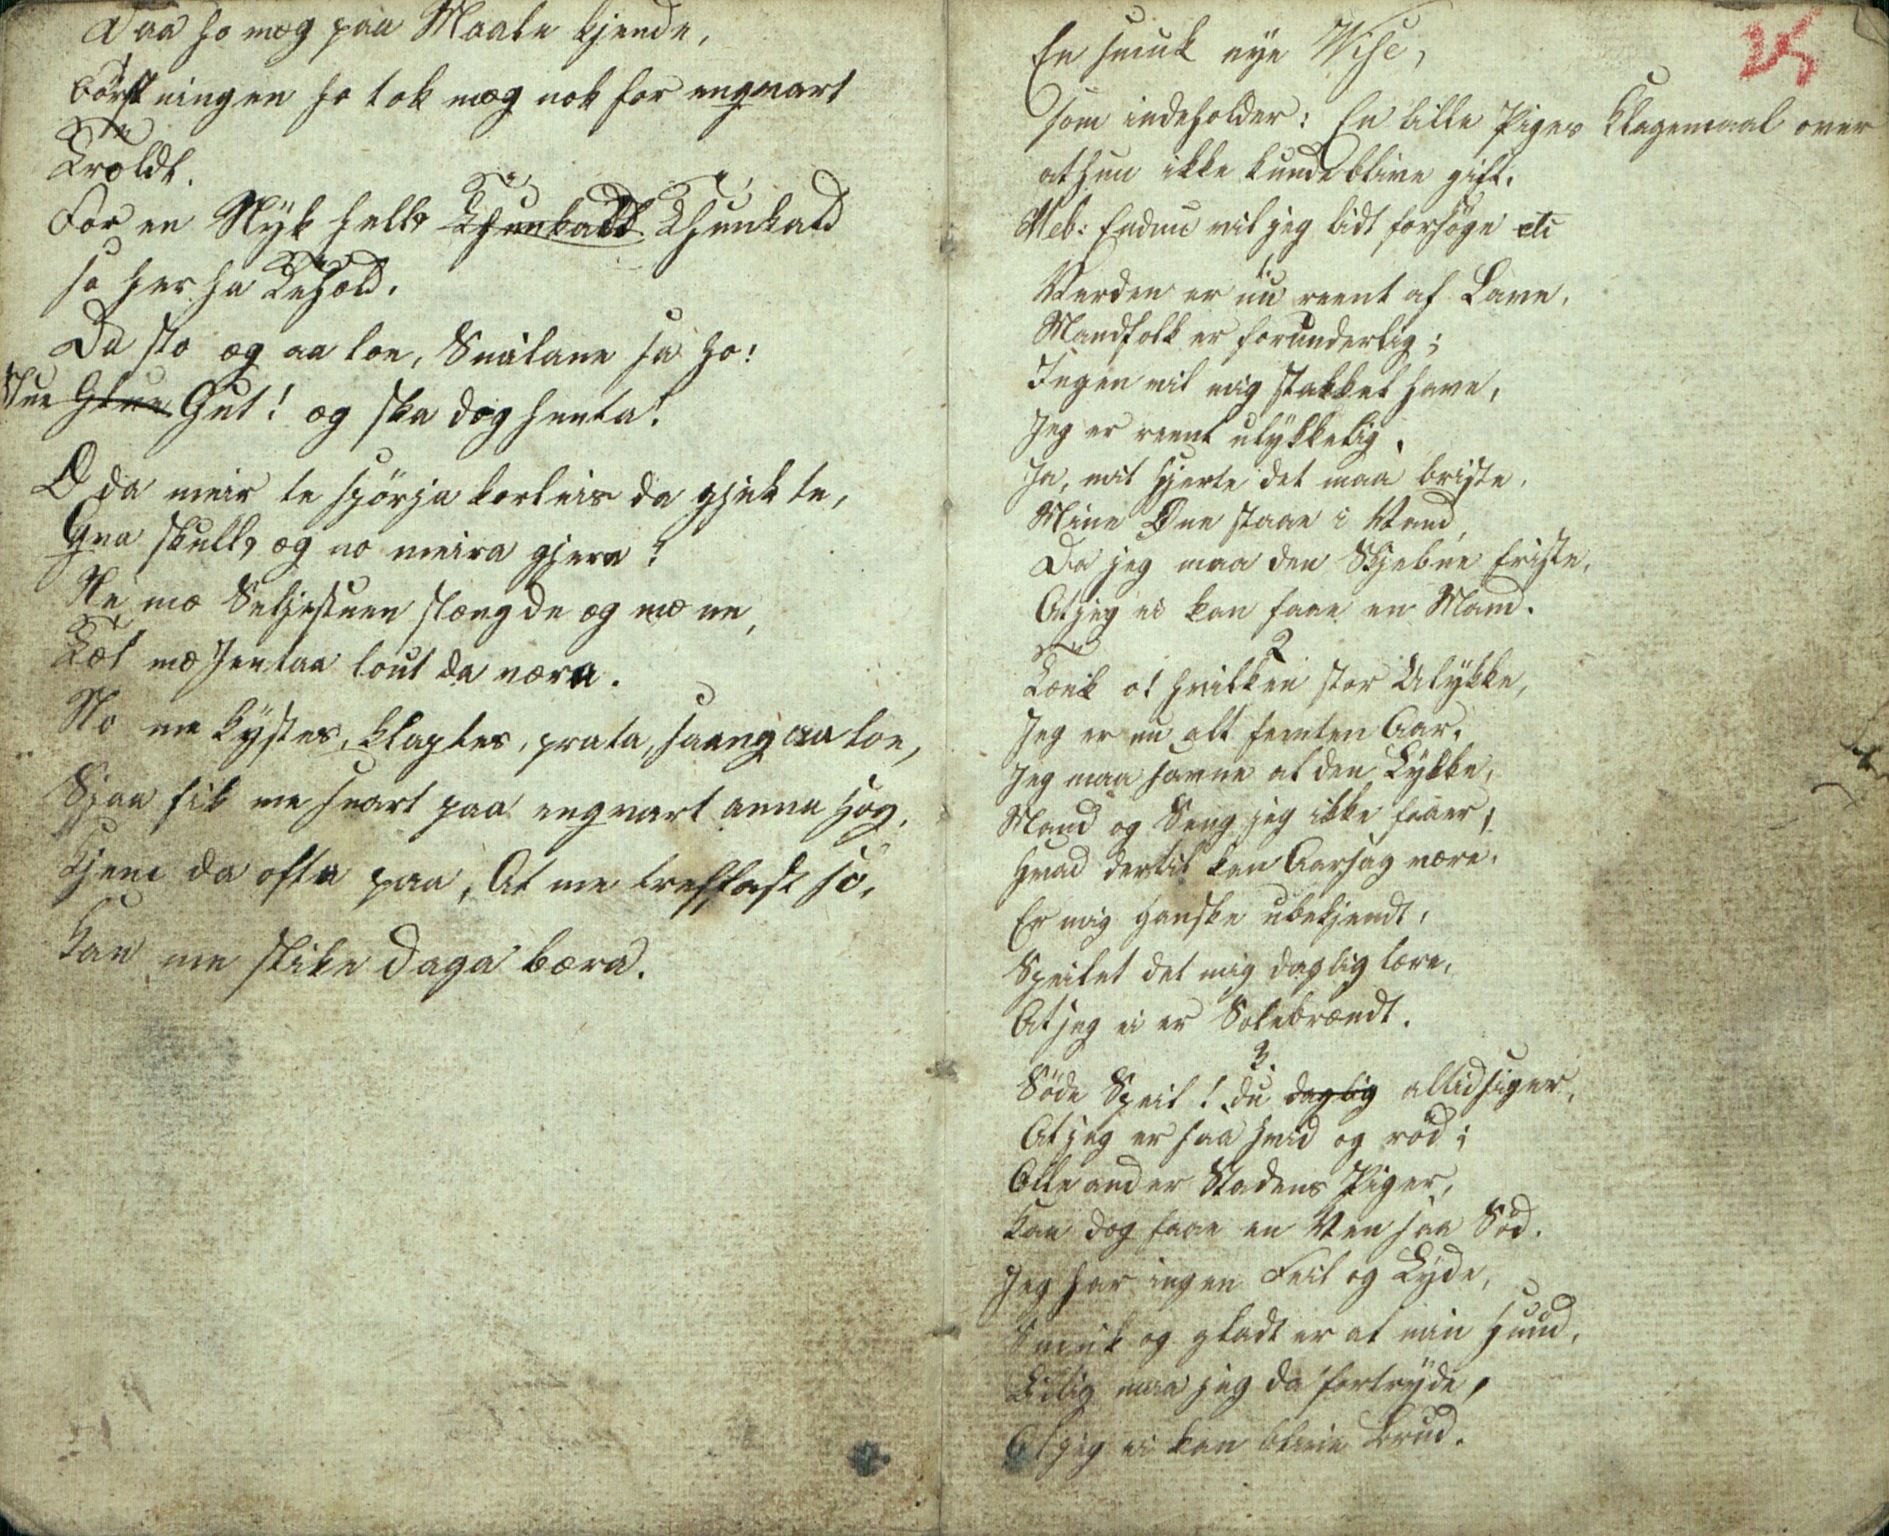 Daa ho mæg paa Maale kjende,
börstningen ho tok mæg nok for engvart
Troldt.
For en Nÿk hell Thunkald Thunkald
so her ha Tehold.
Da sto æg aa loe, Snålane sa ho:
Stue Gut! æg ska dæg henta!
O da meir te spörja korleis da gjek te,
Gua skull æg no meira gjera?
Ne mæ Seljestuen slængde æg mæ ne,
Tæt mæ Jentaa lout da væra.
No me kÿstes, klaptes, prata, saang aa loe,
Sjaa fik me snart paa engvart anna Hog,
Kjem da ofta paa, At me treffast så,
Kan me slike Daga bæra.
25
En smuk nye Vise,
som indeholder: En lille Piges Klagemaal over
at hun ikke kunde blive gift.
Mel: Endnu vil jeg lidt forsöge etc
1.
Verden er nu reent af Lave,
Mandfolk er forunderlig;
Ingen vil mig stakkel have,
Jeg er reent ulÿkkelig.
Ja, mit Hjerte det maa briste,
Mine Øne staae i Vand,
Da jeg maa den Skjebne friste,
At jeg ei kan faae en Mand.
2
Tænk at hvilken stor Ulÿkke,
Jeg er nu alt femten Aar.
Jeg maa savne al den Lÿkke,
Mand og Seng jeg ikke faaer;
Hvad dertil kan Aarsag være,
Er mig Ganske ubekjendt,
Speilet det mig daglig lære,
At jeg ei er Solebrændt.
3.
Söde Speil! du daglig altid siger,
At jeg er saa Hvid og röd;
Alle ander Stadens Piger,
Kan dog faae en Ven saa Söd.
Jeg har ingen Feil og Lÿde,
Smuk og gladt er al min Hud,
Billig maa jeg da fortrÿde,
At jeg ei kan blive Brud.